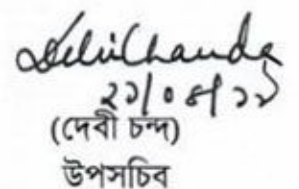 Debi Chanda
২১/০৪/১৯
(দেবী চন্দ)
উপসচিব